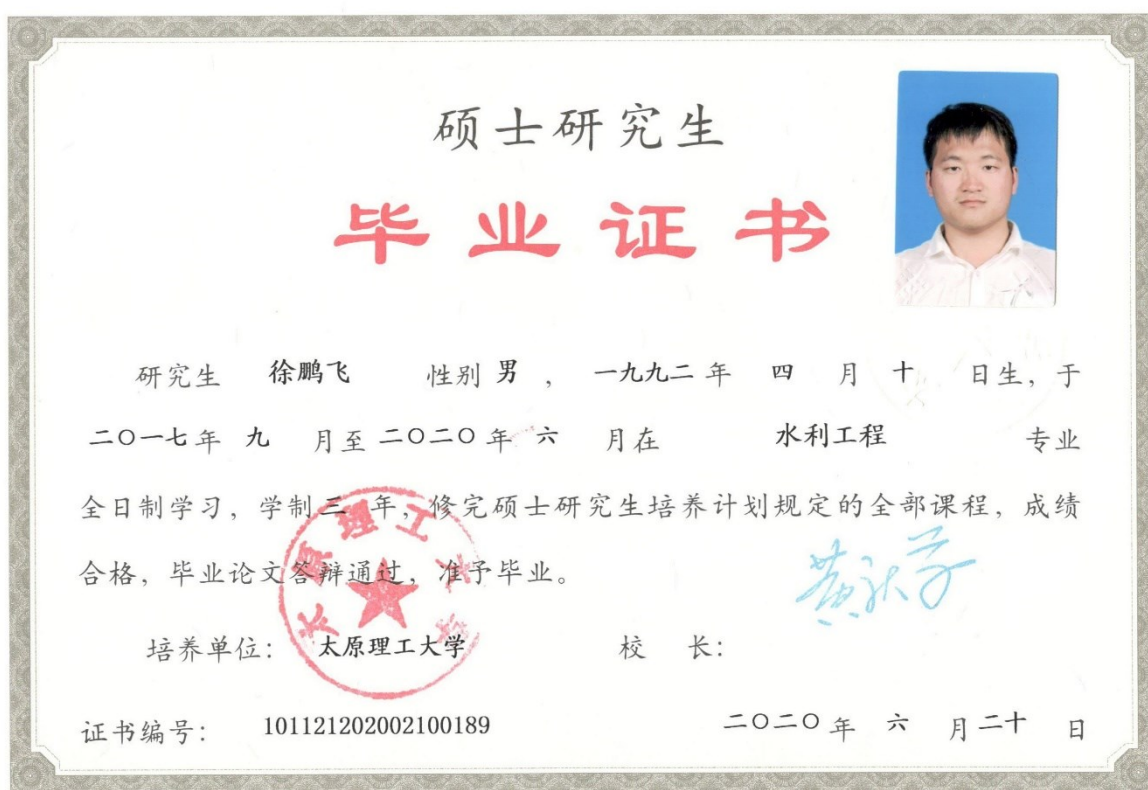 硕士研究生
毕业证书
研究生 徐鹏飞 性别 男 ， 一九九二 年 四 月 十 日生，于
二〇一七 年 九 月至 二〇二〇 年 六 月在 水利工程 专业
全日制学习，学制 三 年，修完硕士研究生培养计划规定的全部课程，成绩
合格，毕业论文答辩通过，准予毕业。
太原理工大学
培养单位： 太原理工大学 校 长：
证书编号： 101121202002100189 二〇二〇 年 六 月 二十 日